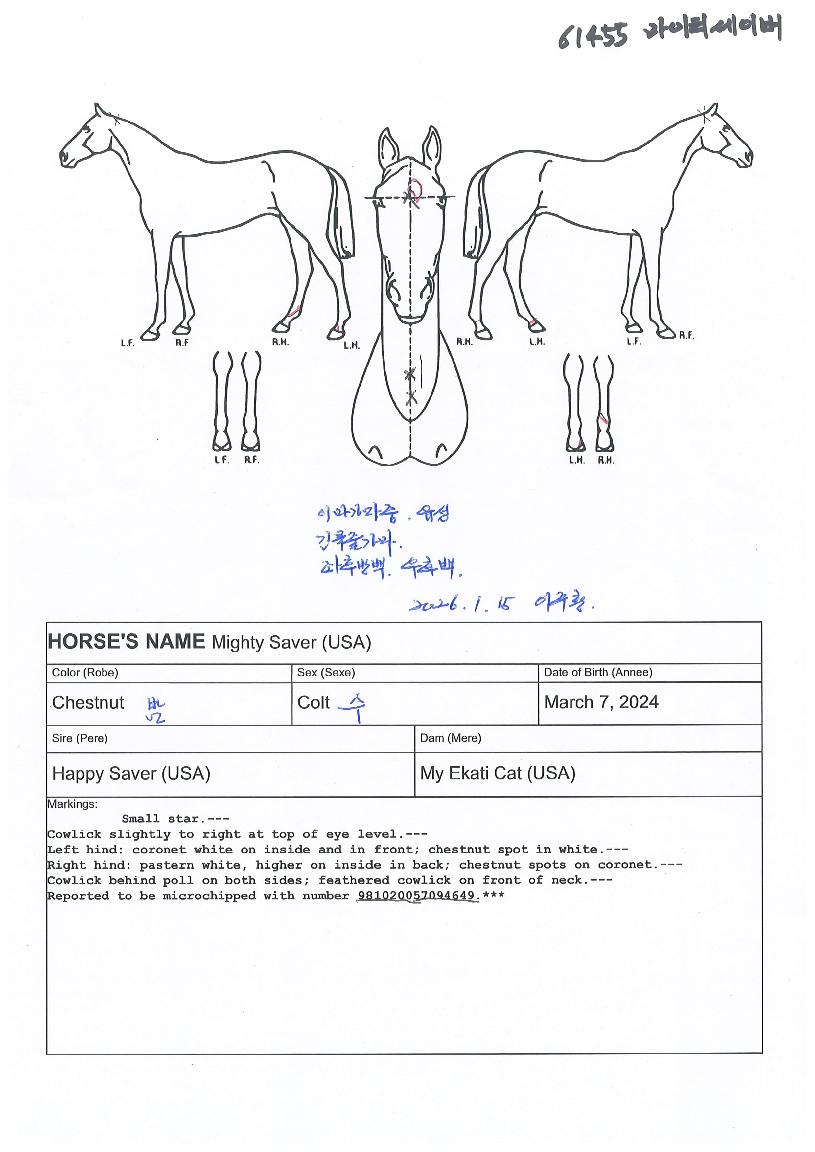 61455 마이티세이버
L.F. R.F. R.H. L.H. R.H. L.H. L.F. R.F.
L.F. R.F. L.H. R.H.
이마가마중. 유성
좌후방백. 우후백.
2026. 1. 15
HORSE'S NAME Mighty Saver (USA)
Color (Robe) Sex (Sexe) Date of Birth (Annee)
Chestnut Colt 수 March 7, 2024
Sire (Pere) Dam (Mere)
Happy Saver (USA) My Ekati Cat (USA)
Markings:
Small star.---
Cowlick slightly to right at top of eye level.---
Left hind: coronet white on inside and in front; chestnut spot in white.---
Right hind: pastern white, higher on inside in back; chestnut spots on coronet.---
Cowlick behind poll on both sides; feathered cowlick on front of neck.---
Reported to be microchipped with number 981020057094649.***